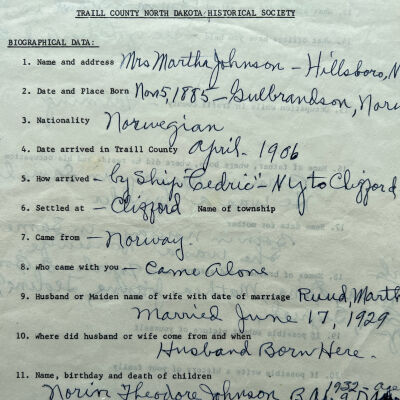 TRAILL COUNTY NORTH DAKOTA HISTORICAL SOCIETY
BIOGRAPHICAL DATA:
1. Name and address Mrs Martha Johnson - Hillsboro, N
2. Date and Place Born Nov 5, 1885 - Gulbrandson, Norw
3. Nationality Norwegian
4. Date arrived in Traill County April - 1906
5. How arrived - by Ship "Cedric" - NY to Clifford
6. Settled at - Clifford Name of township
7. Came from - Norway.
8. Who came with you - Came Alone
9. Husband or Maiden name of wife with date of marriage Ruud, Marth
Married June 17, 1929
10. where did husband or wife come from and when
Husband Born Here.
11. Name, birthday and death of children
1932 - age
Norin Theodore Johnson